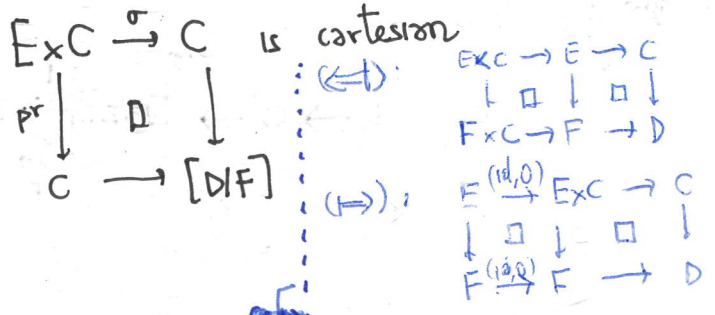 E×C →σ C is cartesian
pr ↓ □ ↓
C → [D/F]
(⇐):
E×C → E → C
↓ □ ↓ □ ↓
F×C → F → D
(⇒):
E (id,0)→ E×C → C
↓ □ ↓ □ ↓
F (id,0)→ F → D